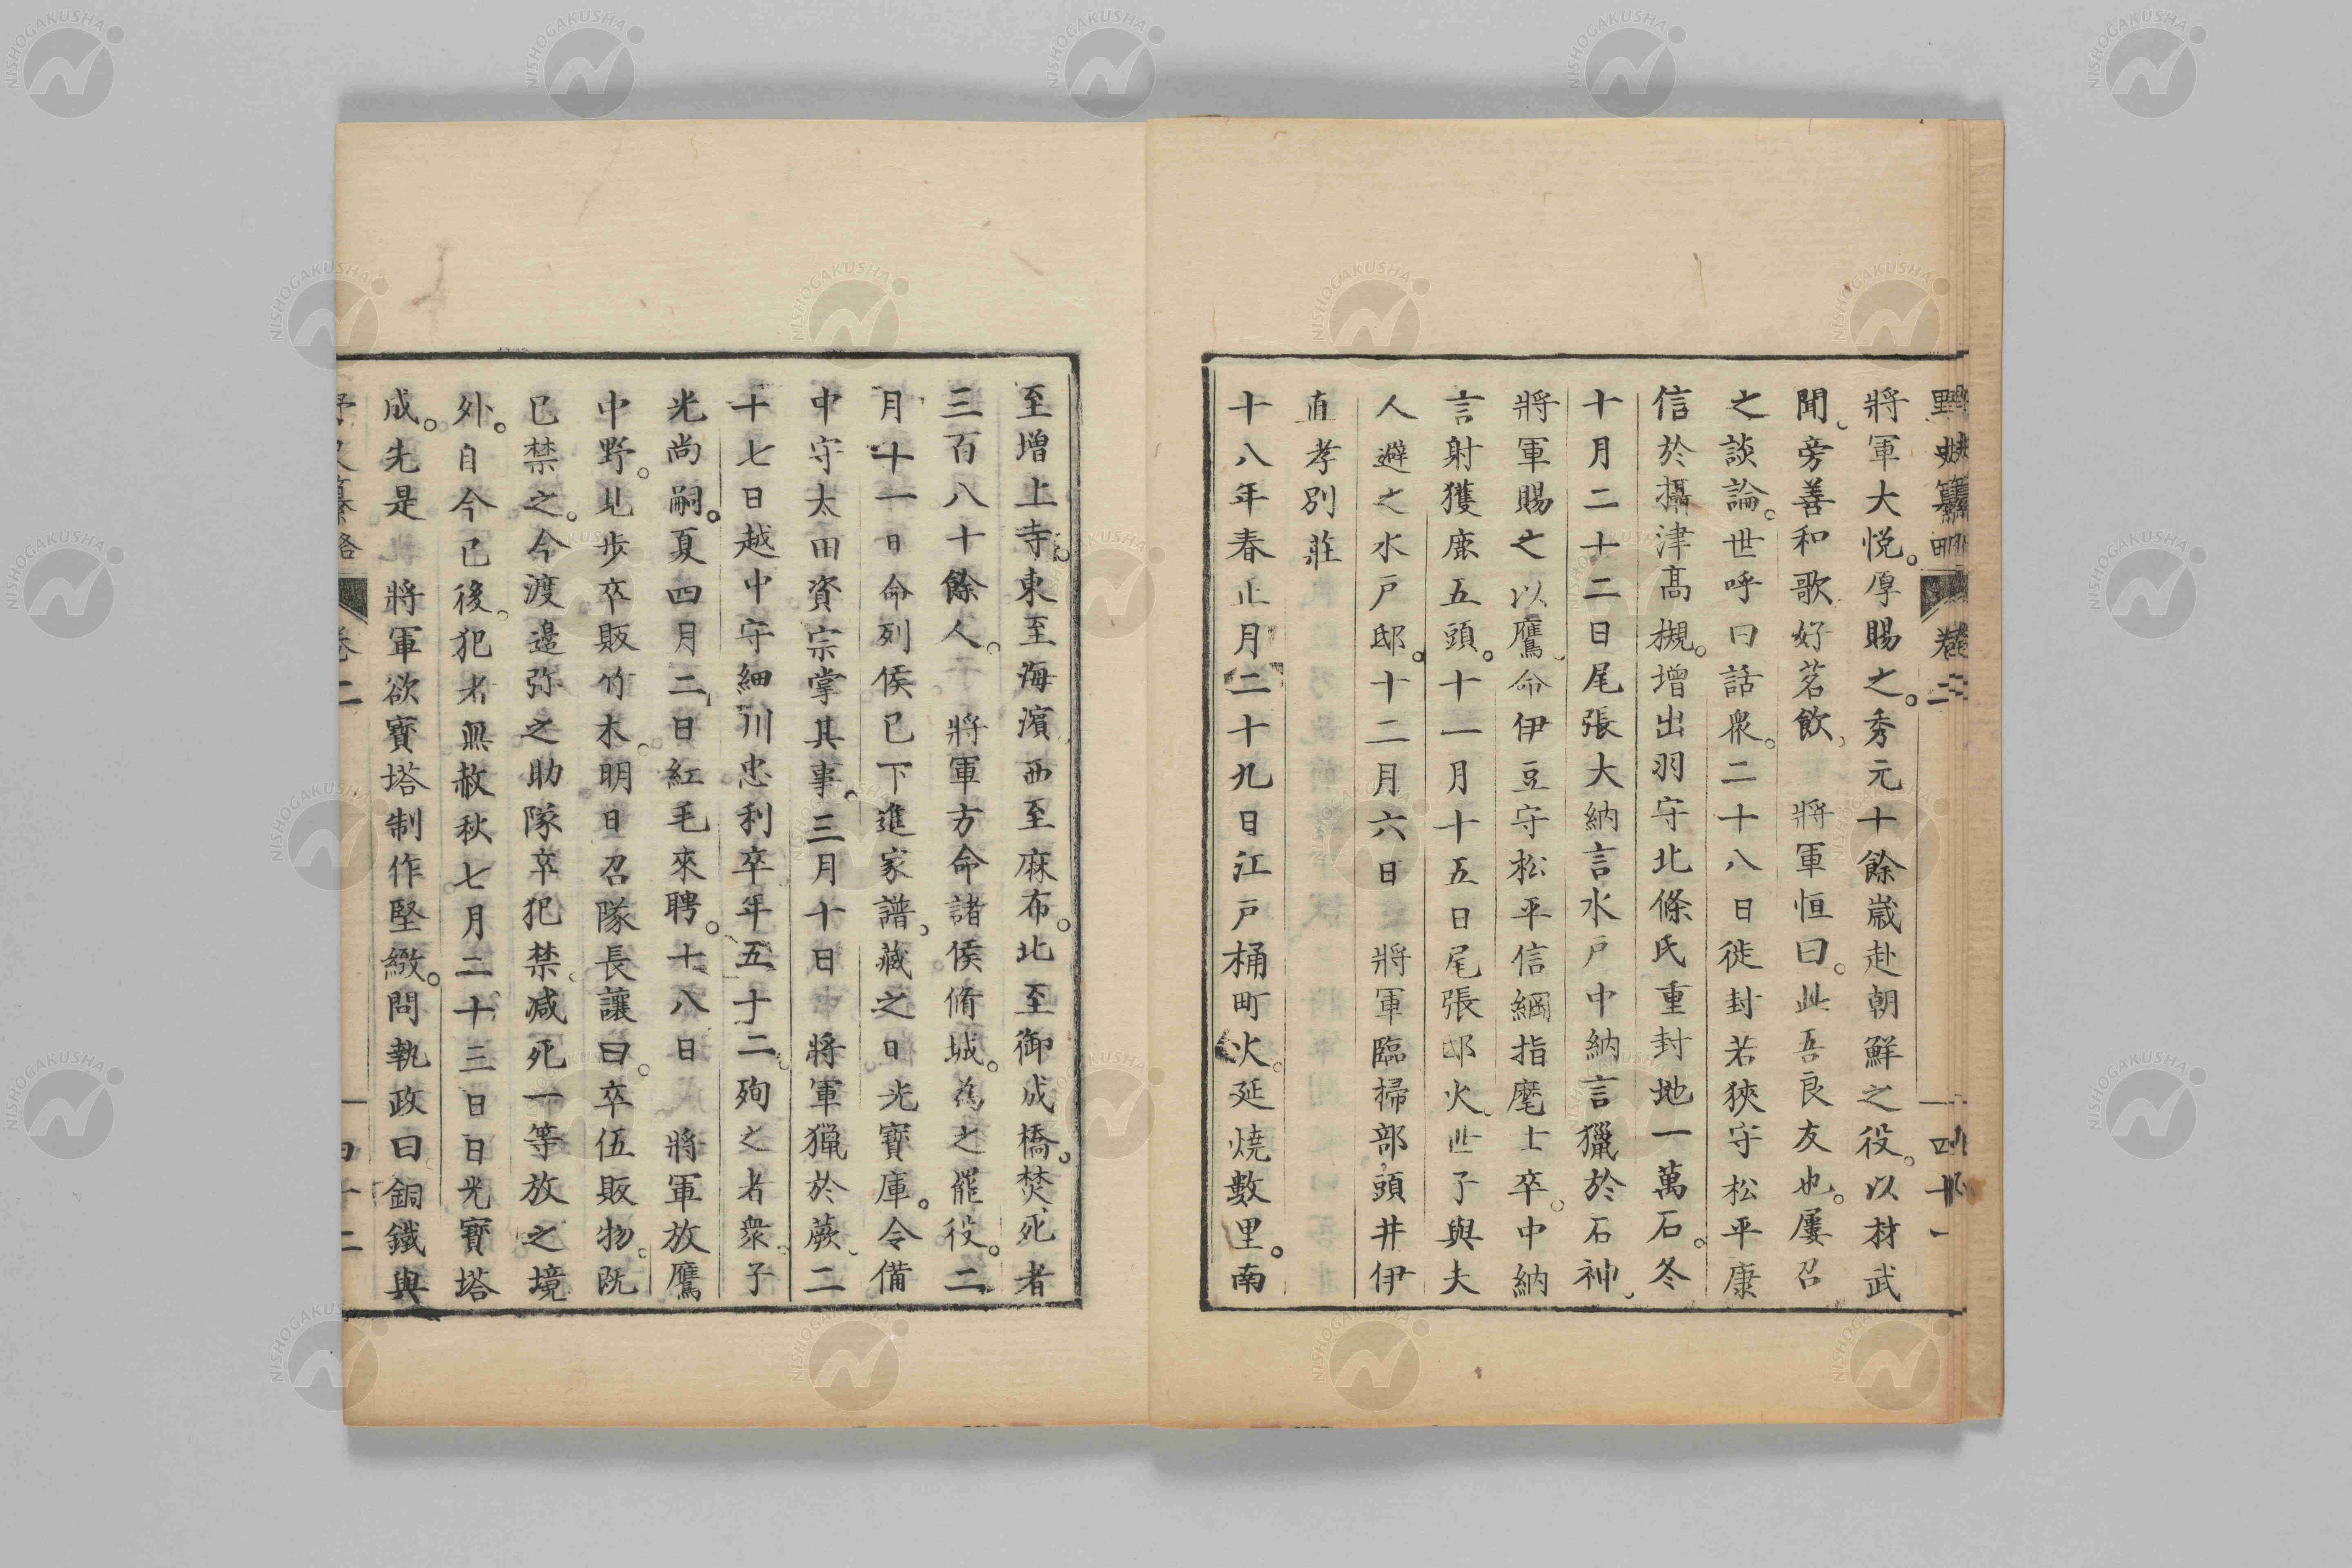 將軍大悦。厚賜之。秀元十餘歳赴朝鮮之役。以材武
聞。旁善和歌好茗飲、將軍恒曰。此吾良友也。屢召
之談論。世呼曰話衆。二十八日徙封若狹守松平康
信於攝津髙槻。増出羽守北條氏重封地一萬石。冬
十月二十二日尾張大納言水戸中納言獵於石神、
將軍賜之以鷹、命伊豆守松平信綱指麾士卒。中納
言射獲鹿五頭。十一月十五日尾張邸火、世子與夫
人避之水戸邸。十二月六日將軍臨掃部頭井伊
直孝別荘
十八年春正月二十九日江戸桶町火。延燒數里。南
至增上寺。東至海濱、西至麻布。北至御成橋。焚死者
三百八十餘人。將軍方命諸侯脩城。為之罷役。二
月十一日命列侯已下進家譜、藏之日光寶庫。令備
中守太田資宗掌其事。三月十日將軍獵於蕨、二
十七日越中守細川忠利卒年五十二、殉之者衆。子
光尚嗣。夏四月二日紅毛來聘。十八日將軍放鷹
中野。見歩卒販竹木。明日召隊長讓曰。卒伍販物。既
已禁之。今渡邉弥之助隊卒犯禁、减死一等放之境
外。自今已後。犯者無赦秋七月二十三日日光寶塔
成。先是將軍欲寶塔制作堅緻。問執政曰銅鐵與
卷二
四十二
NISHOGAKUSHA